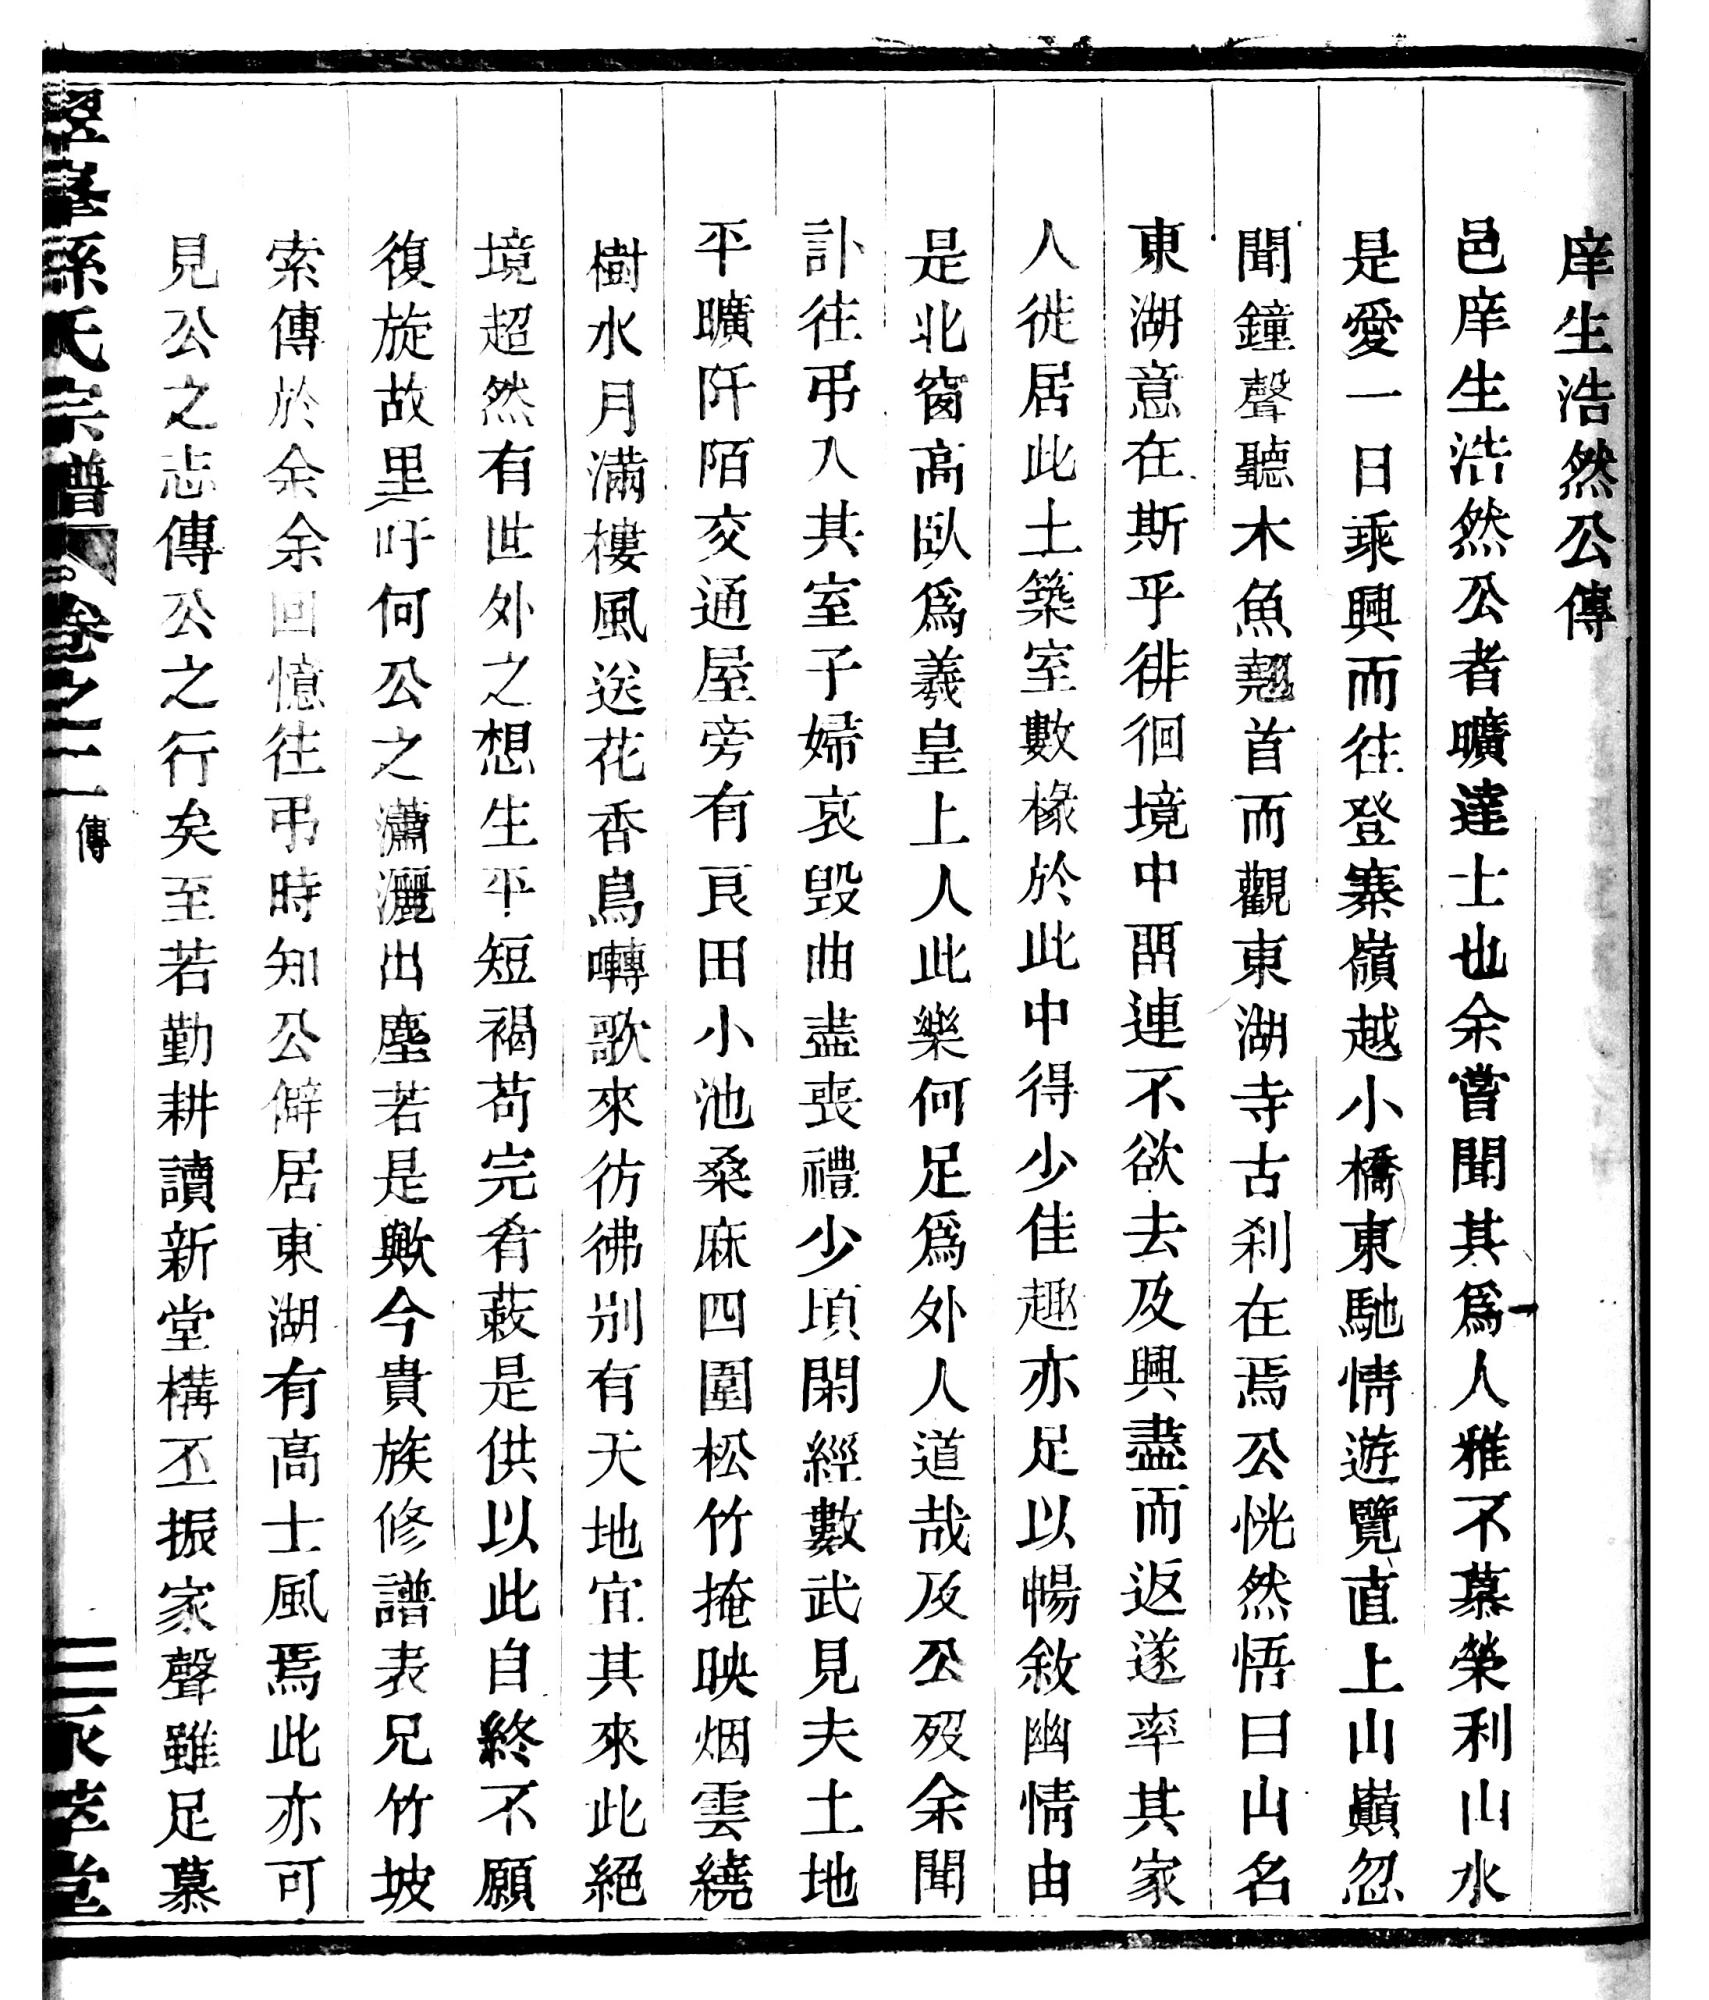 庠生浩然公傳
邑庠生浩然公者曠達士也余嘗聞其爲人雅不慕榮利山水
是愛一日乘興而往登寨嶺越小橋東馳情遊覽直上山巔忽
聞鐘聲聽木魚翹首而觀東湖寺古刹在焉公恍然悟曰山名
東湖意在斯乎徘徊境中畱連不欲去及興盡而返遂率其家
人徙居此土築室數椽於此中得少佳趣亦足以暢敘幽情由
是北窗高臥爲羲皇上人此樂何足爲外人道哉及公歿余聞
訃往弔入其室子婦哀毀曲盡喪禮少頃閑經數武見夫土地
平曠阡陌交通屋旁有良田小池桑麻四圍松竹掩映烟雲繞
樹水月滿樓風送花香鳥囀歌來彷彿別有天地宜其來此絕
境超然有世外之想生平短褐苟完肴蔌是供以此自終不願
復旋故里吁何公之瀟灑出塵若是歟今貴族修譜表兄竹坡
索傳於余余回憶往弔時知公僻居東湖有高士風焉此亦可
見公之志傳公之行矣至若勤耕讀新堂構丕振家聲雖足慕
孫氏宗譜 卷之二 傳 三 堂